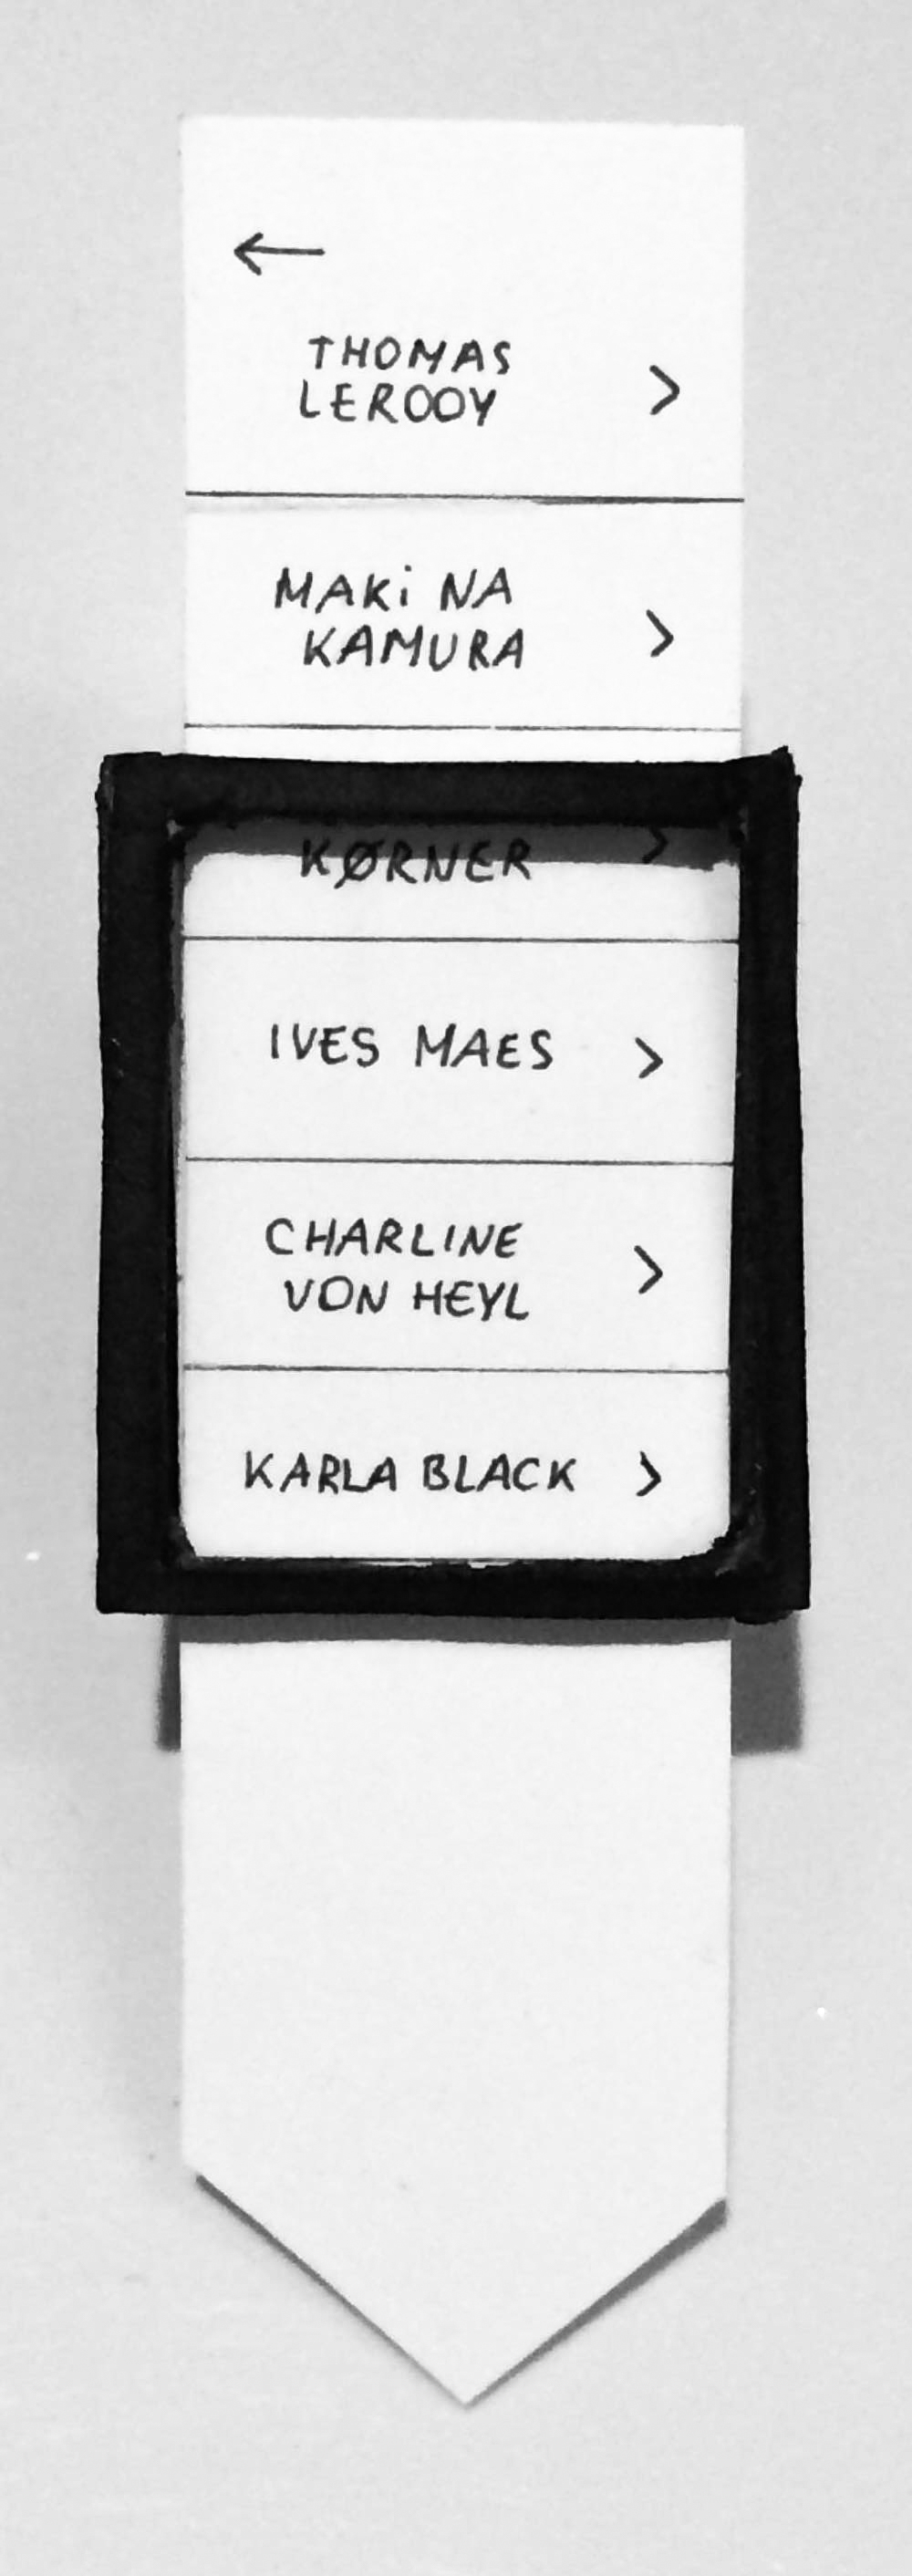 ←
THOMAS
LEROOY >
MAKi NA
KAMURA >
KØRNER >
IVES MAES >
CHARLINE
VON HEYL >
KARLA BLACK >